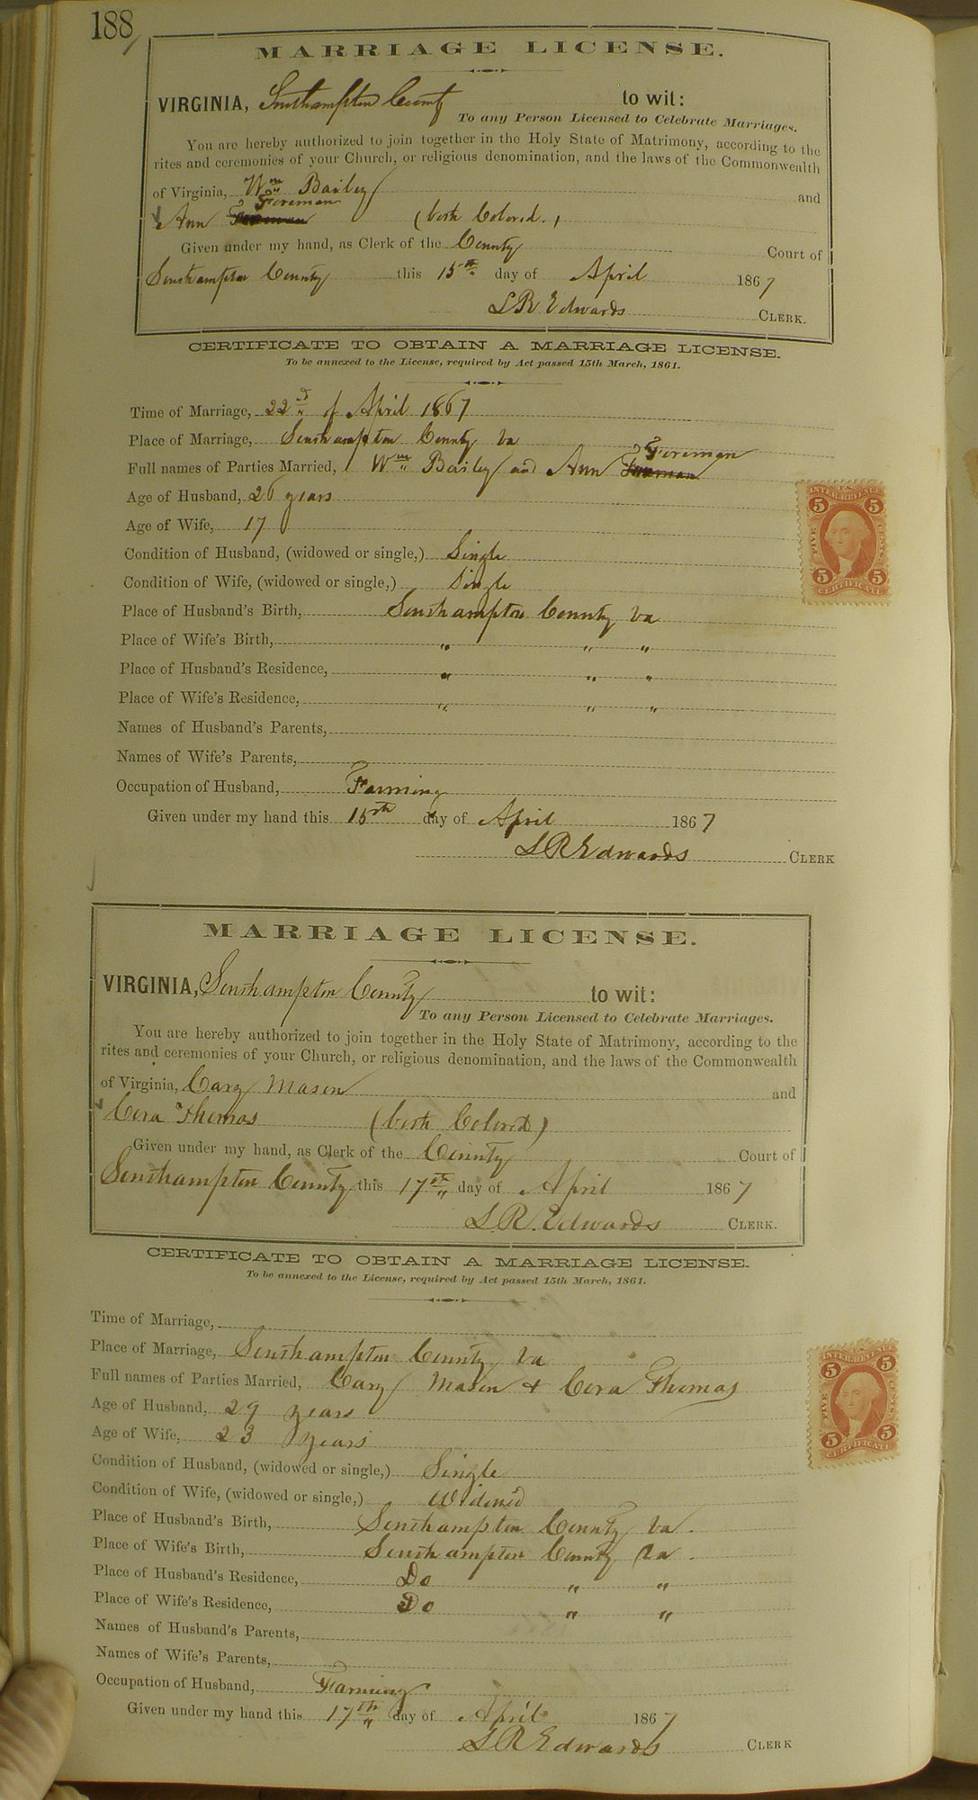 188
MARRIAGE LICENSE.
VIRGINIA, Southampton County to wit:
To any Person Licensed to Celebrate Marriages.
You are hereby authorized to join together in the Holy State of Matrimony, according to the
rites and ceremonies of your Church, or religious denomination, and the laws of the Commonwealth
of Virginia, Wm Bailey and
Foreman
Ann (both Colored.)
Given under my hand, as Clerk of the County Court of
Southampton County this 15th day of April 1867
L R Edwards CLERK.
CERTIFICATE TO OBTAIN A MARRIAGE LICENSE.
To be annexed to the License, required by Act passed 15th March, 1861.
Time of Marriage, 22d of April 1867
Place of Marriage, Southampton County Va
Foreman
Full names of Parties Married, Wm Bailey and Ann
Age of Husband, 26 years
Age of Wife, 17
Condition of Husband, (widowed or single,) Single
Condition of Wife, (widowed or single,) Single
Place of Husband's Birth, Southampton County Va
Place of Wife's Birth, " " "
Place of Husband's Residence, " " "
Place of Wife's Residence, " " "
Names of Husband's Parents,
Names of Wife's Parents,
Occupation of Husband, Farming
Given under my hand this 15th day of April 1867
L R Edwards CLERK
INTER. REVENUE
5 5
FIVE CENTS
5 5
CERTIFICATE
MARRIAGE LICENSE.
VIRGINIA, Southampton County to wit:
To any Person Licensed to Celebrate Marriages.
You are hereby authorized to join together in the Holy State of Matrimony, according to the
rites and ceremonies of your Church, or religious denomination, and the laws of the Commonwealth
of Virginia, Cary Mason and
Cora Thomas (both Colored)
Given under my hand, as Clerk of the County Court of
Southampton County this 17th day of April 1867
L R. Edwards CLERK.
CERTIFICATE TO OBTAIN A MARRIAGE LICENSE.
To be annexed to the License, required by Act passed 15th March, 1861.
Time of Marriage,
Place of Marriage, Southampton County Va
Full names of Parties Married, Cary Mason + Cora Thomas
Age of Husband, 29 years
Age of Wife, 23 years
Condition of Husband, (widowed or single,) Single
Condition of Wife, (widowed or single,) Widowed
Place of Husband's Birth, Southampton County Va.
Place of Wife's Birth, Southampton County Va.
Place of Husband's Residence, Do " "
Place of Wife's Residence, Do " "
Names of Husband's Parents,
Names of Wife's Parents,
Occupation of Husband, Farming
Given under my hand this 17th day of April 1867
L R Edwards CLERK
INTER. REVENUE
5 5
FIVE CENTS
5 5
CERTIFICATE